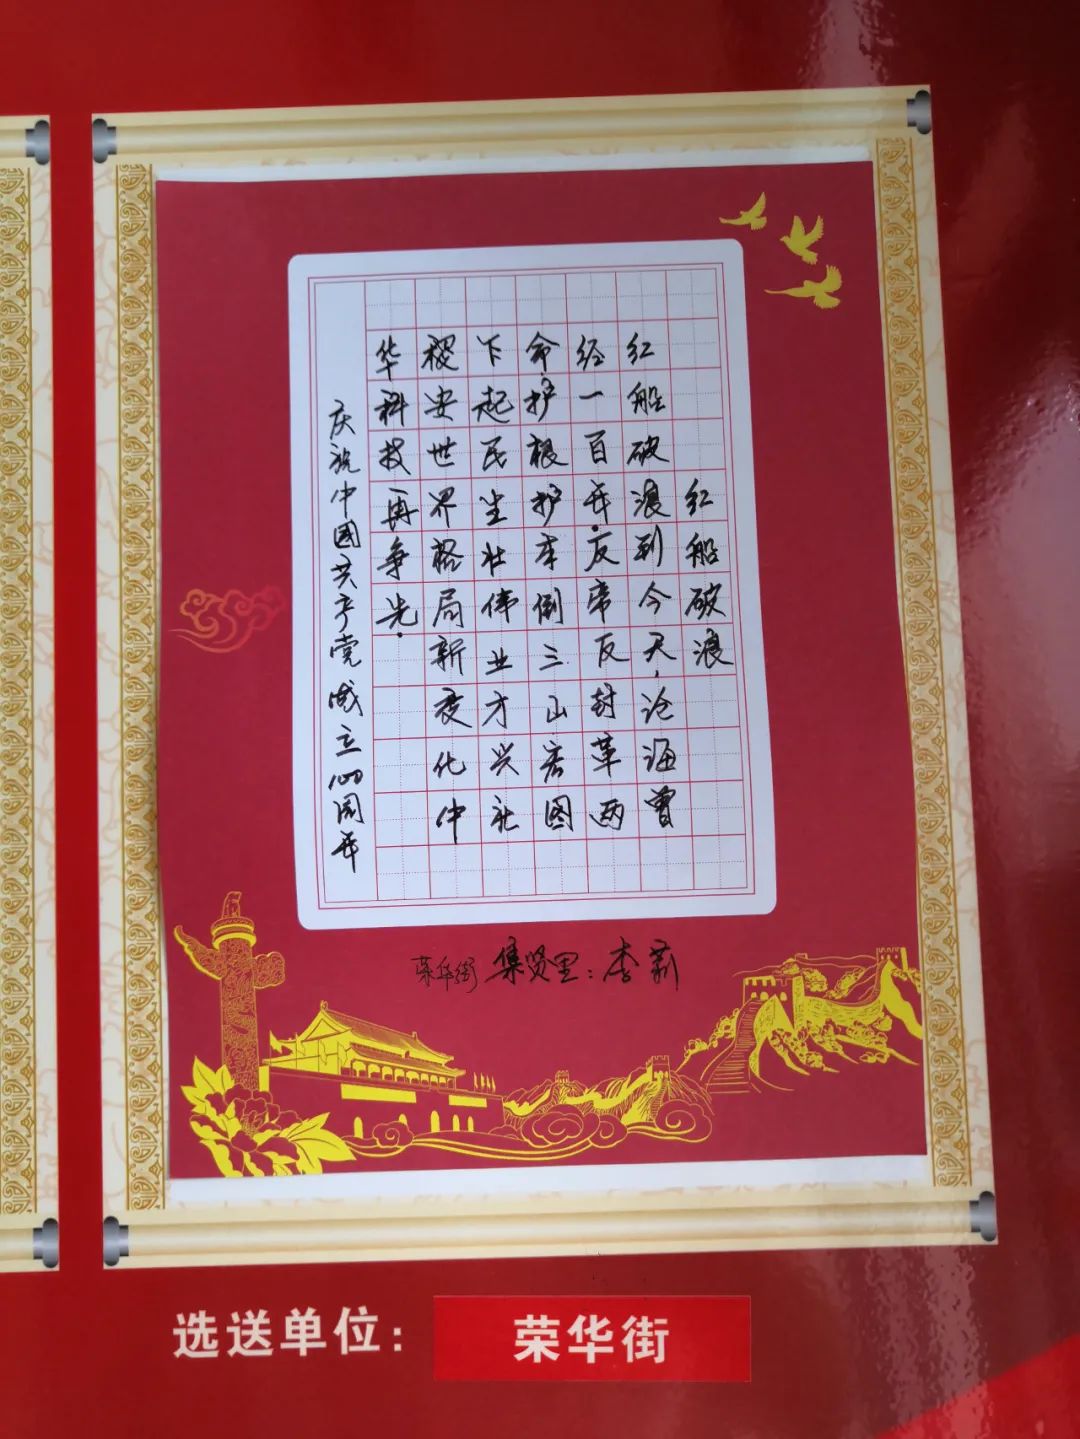 红船破浪
红船破浪到今天,沧海曾
经一百年.反帝反封革两
命.护根护本倒三山宏图
下起民壮伟业才兴社
稷安世界格局新变化中
华科技再争先.
庆祝中国共产党成立100周年
荣华街 集贤里:李莉
选送单位: 荣华街